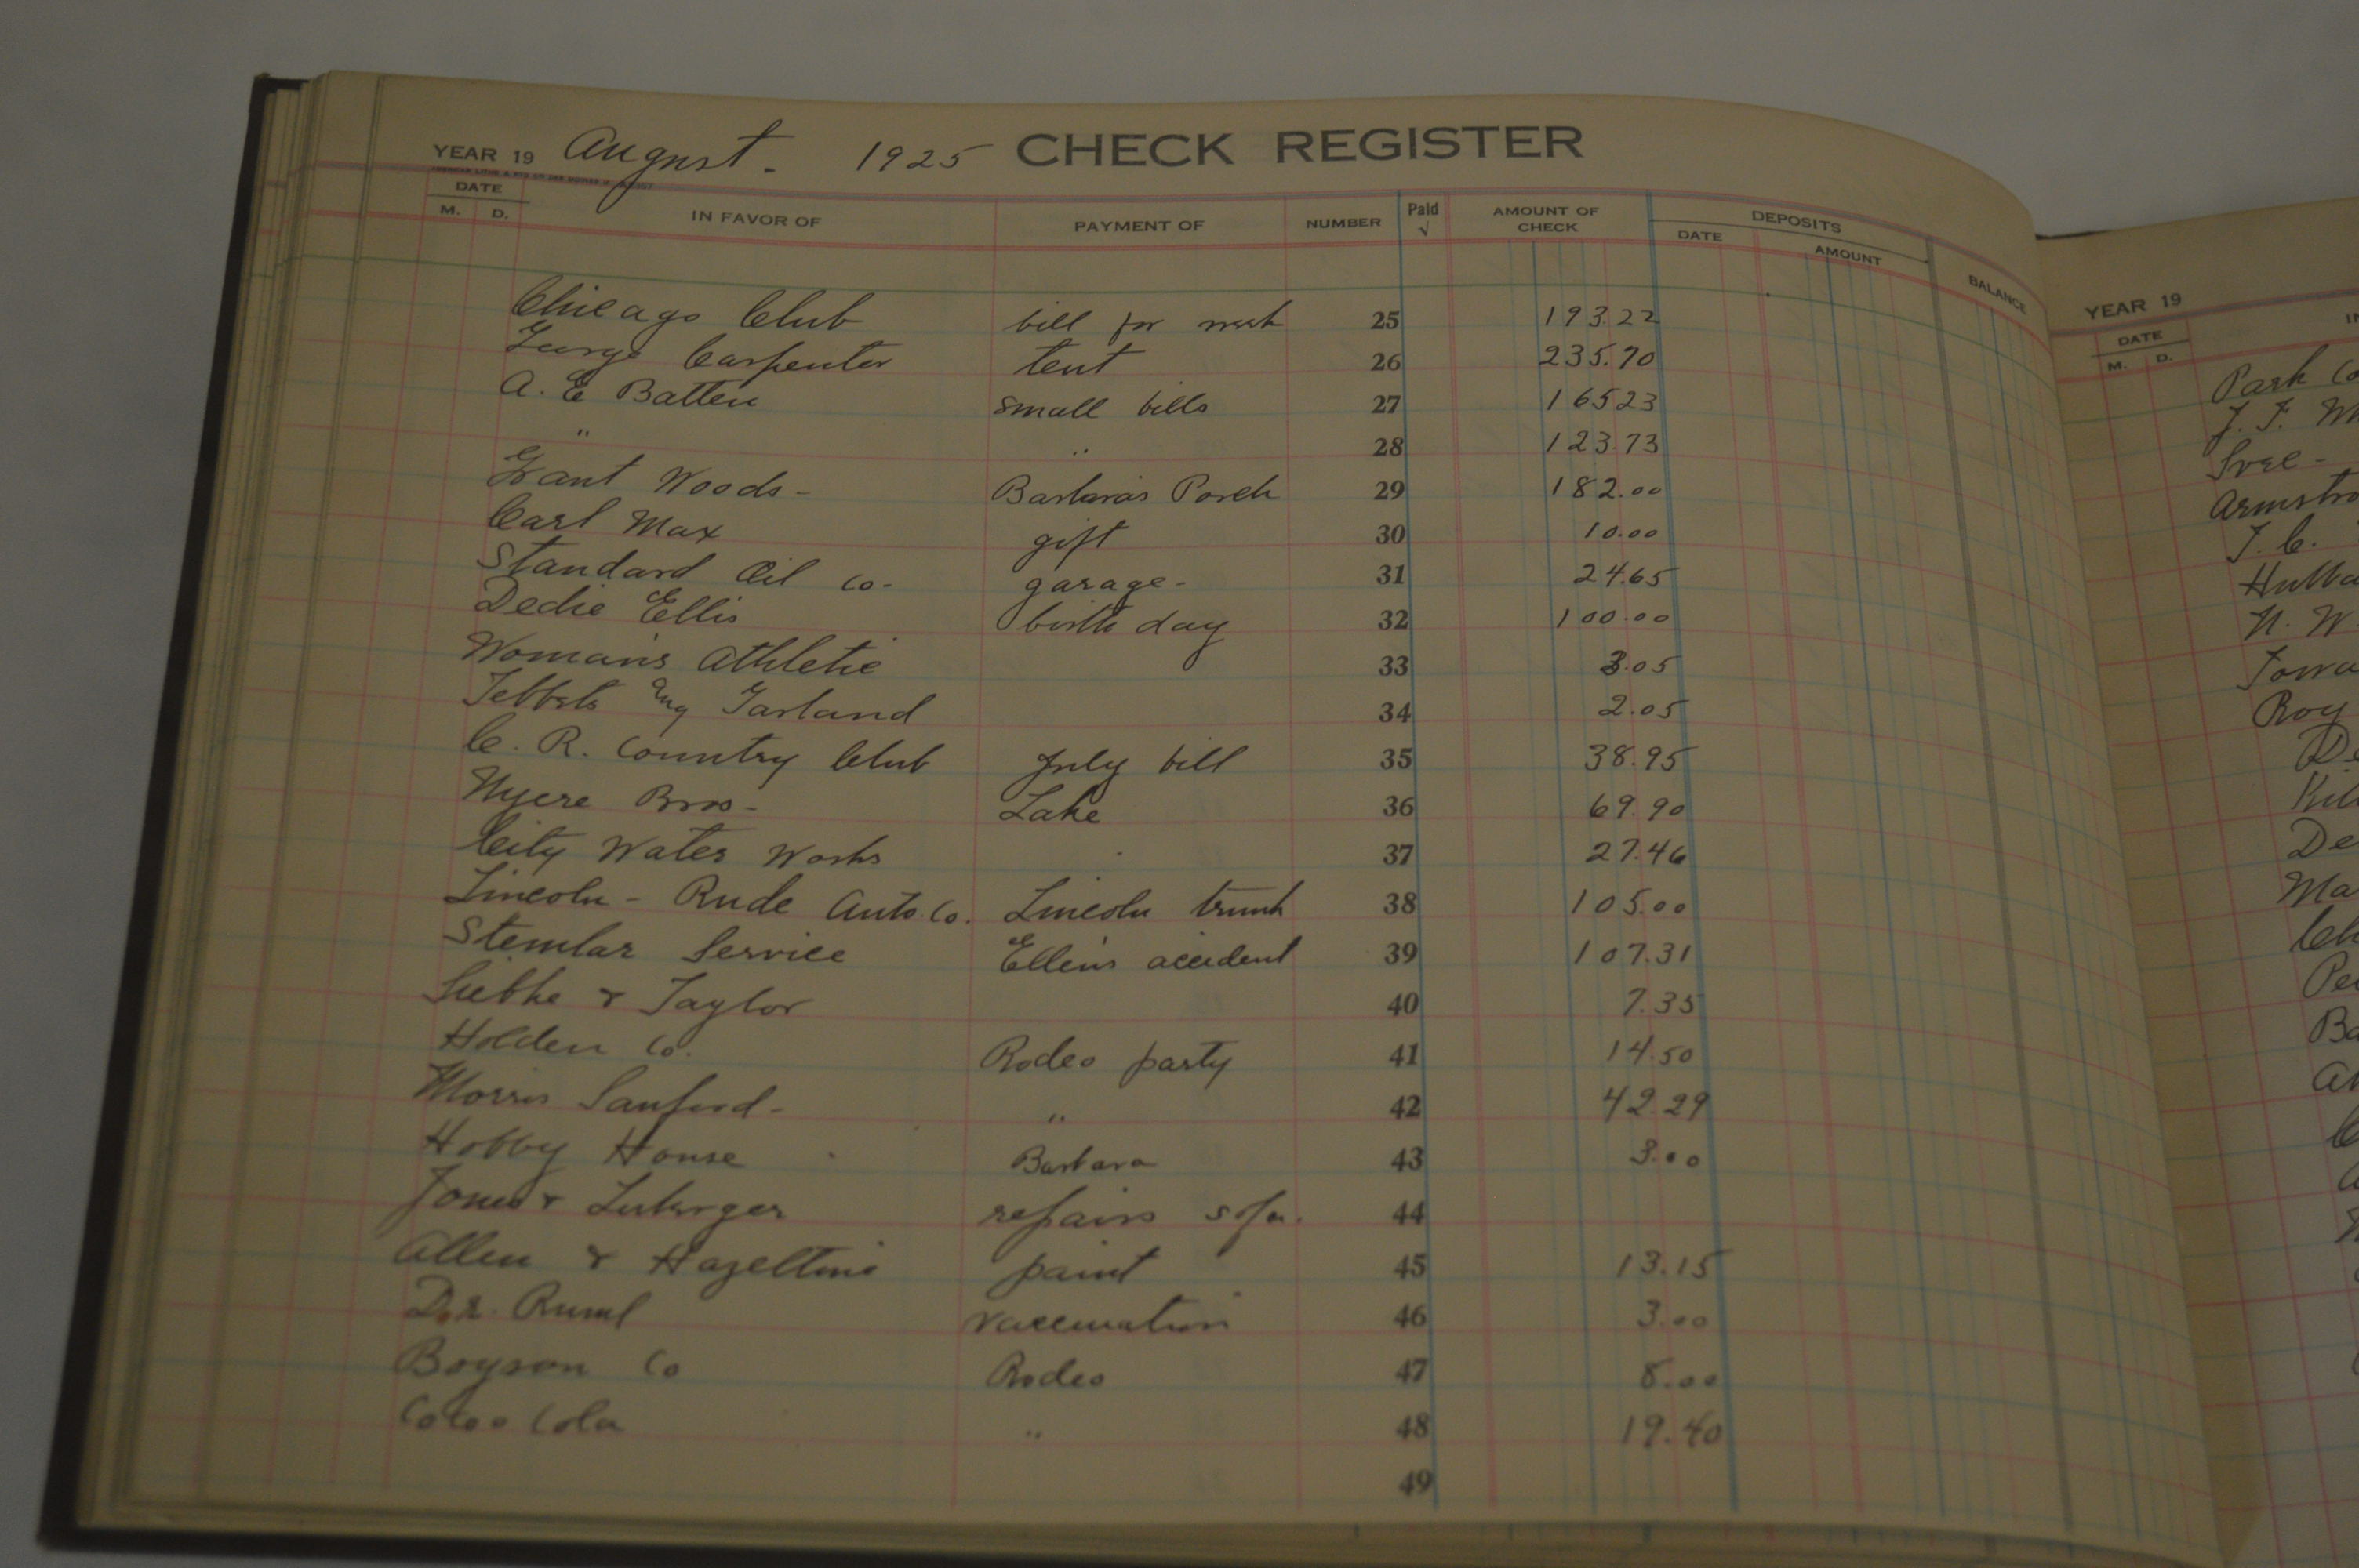 YEAR 19 August. 1925 CHECK REGISTER
DATE IN FAVOR OF PAYMENT OF NUMBER Paid √ AMOUNT OF CHECK DEPOSITS BALANCE
M. D. DATE AMOUNT
Chicago Club bill for week 25 193.22
George Carpenter tent 26 235.70
A. E Batten small bills 27 165 23
" " 28 123.73
Grant Woods - Barbara's Porch 29 182.00
Carl Max gift 30 10.00
Standard Oil Co - garage - 31 24.65
Dedie Ellis birth day 32 100.00
Woman's Athletic 33 3.05
Tebbets Garland 34 2.05
C. R. Country Club July bill 35 38.95
Bros - Lake 36 69.90
City Water Works 37 27.46
Lincoln - Rude Auto. Co. Lincoln trunk 38 105.00
Stemlar Service Ellen's accident 39 107.31
& Taylor 40 7.35
Holden Co. Rodeo party 41 14.50
Morris Sanford - " 42 42.29
Hobby House Barbara 43 3.00
Jones & repairs sofa. 44
Allen & Hazeltine paint 45 13.15
Dr. Ruml vaccination 46 3.00
Boyson Co Rodeo 47 8.00
Coco Cola " 48 19.40
49
YEAR 19
DATE
M. D.
Park Co
J. F.
Svee -
Armstro
J. C.
Hubba
N. W.
Iowa
Roy